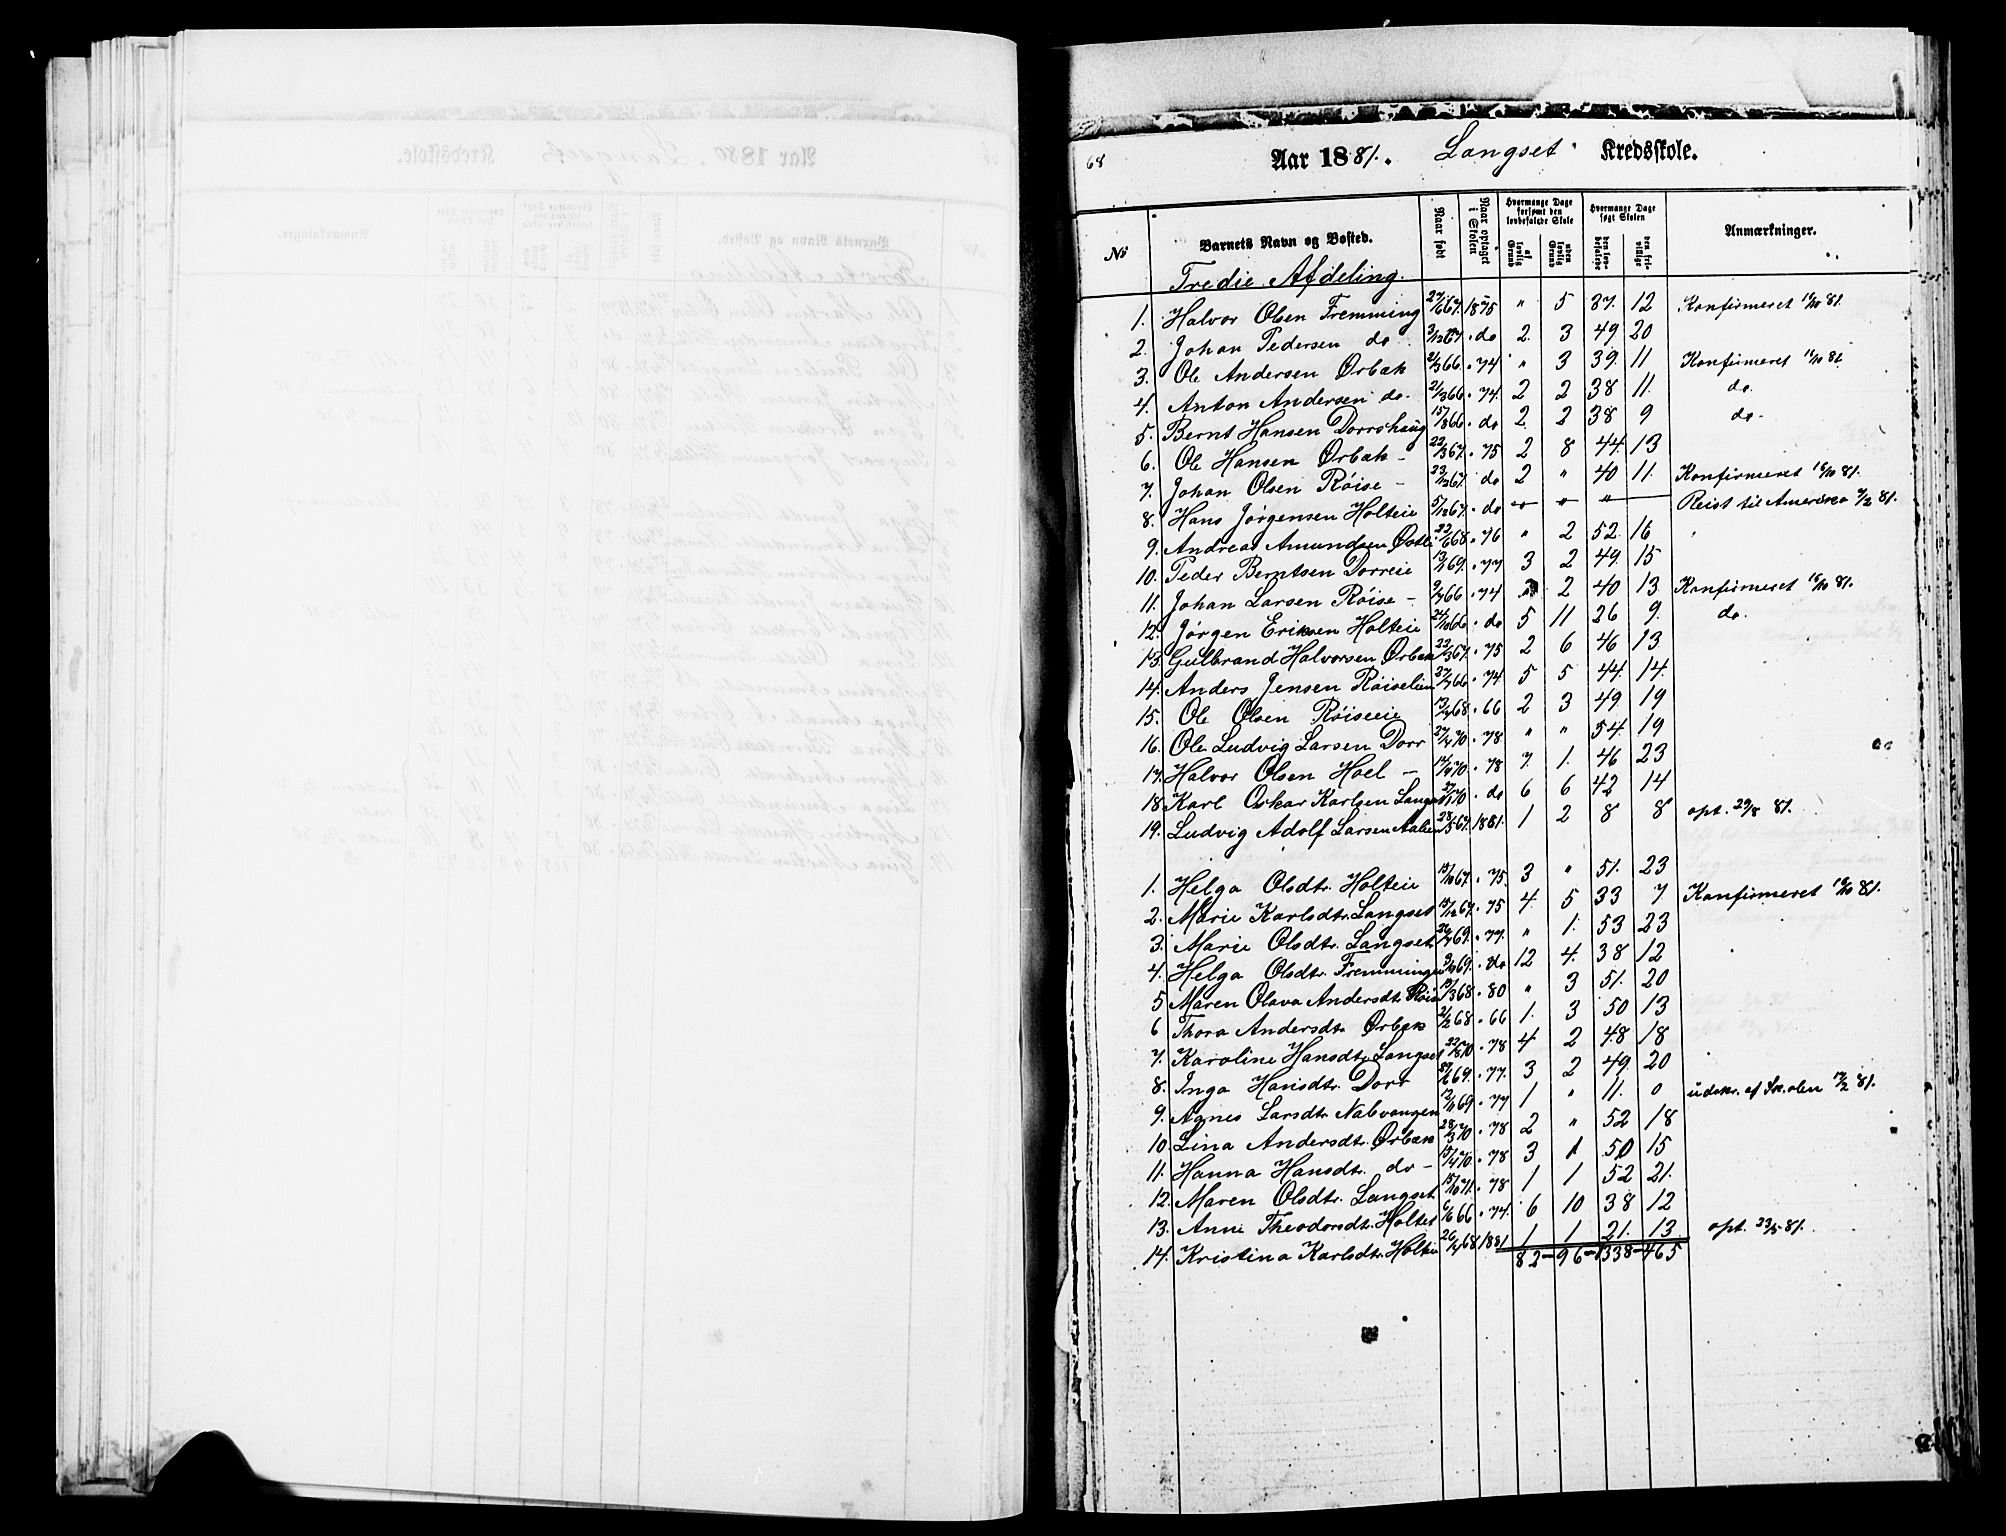 68
Aar 1881. Langset Kredsskole.
No Barnets Navn og Bosted. Naar født Naar optaget i Skolen Hvormange Dage forsømt den lovbefalede Skole af lovlig Grund uden lovlig Grund Hvormange Dage søgt Skolen den lovbefalede den frivillige Anmærkninger.
Tredie Afdeling.
1. Halvor Olsen Fremming 27/6 67. 1875 " 5 37. 12 Konfirmeret 16/10 81.
2. Johan Pedersen do 3/12 67 . do 2. 3 49 20
3. Ole Andersen Ørbæk 2/3 66. . 74 " 3 39. 11 Konfirmeret 16/10 81.
4. Anton Andersen do. 2/3 66. . 74. 2 2 38 11. do.
5. Bernt Hansen Dorrshaug 15/8 66 . do 2. 2 38 9 do.
6. Ole Hansen Ørbæk - 22/3 67. . 75 2 8 44. 13
7. Johan Olsen Røise - 23/12 67. do 2 " 40 11. Konfirmeret 16/10 81.
8. Hans Jørgensen Holteie 5/12 67. . do " " " Reist til Amerika 81.
9. Andreas Amundsen 22/6 68 . 76 " 2 52. 16
10. Peder Berntsen Dorreie 13/1 69. . 77 3 2 49. 15
11. Johan Larsen Røise - 9/7 66 . 74 2 40 13 Konfirmeret 16/10 81.
12. Jørgen Eriksen Holteie 24/10 66 . do 5 11 26 9. do.
13. Gulbrand Halvorsen Ørbæk 22/3 67. . 75 2 6 46 13
14. Anders Jensen Røiselien 27/7 66 . 74. 5 5 44. 14.
15. Ole Olsen Røiseeie 68 . 66 2 3 49. 19
16. Ole Ludvig Larsen Dorr 27/4 70 . 78 " " 54. 19
17. Halvor Olsen Hoel - 70. . 78 7. 1. 46 23
18. Karl Oskar Karlsen Langset 70 . do 6 6 42 14
19. Ludvig Adolf Larsen 28/5 67. 1881. 1 2 8 8 opt. 29/8 81.
1. Helga Olsdtr. Holteie 15/10 67. . 75. 3 " 51. 23
2. Marie Karlsdtr. Langset 15/12 67. . 75 4. 5 33 7 Konfirmeret 16/10 81.
3. Marie Olsdtr. Langset 69. . 77. " 1. 53 23
4. Helga Olsdtr. Fremmingen 69. . do 12 4. 38 12
5 Maren Olava Andersdtr. Røise 68 . 80 " 3 51. 20
6 Thora Andersdtr. Ørbæk 2/2 68 . 66 1. 3 50 13
7. Karoline Hansdtr. Langset 22/8 70 . 78 4 2 48 18
8. Inga Hansdtr. Dorr 69. . 77. 3 2 49. 20
9. Agnes Larsdtr. Nabvangen 69 . 77 1 " 11. 0 udskr. af Skolen 17/2 81.
10. Lina Andersdtr. Ørbæk 28/3 70 . 78 2 " 52 18
11. Hanna Hansdtr. do - 15/4 70. . 78 3 1 50 15
12. Maren Olsdtr. Langset 15/10 71. . 78 1 1 52 21.
13. Anne Theodorsdtr. Holtet 6/6 66 . 74. 6 10 38 12
14. Kristina Karlsdtr. Holteie 68 1881 1 1 21. 13 opt. 23/5 81.
82 - 96 - 1338 - 465